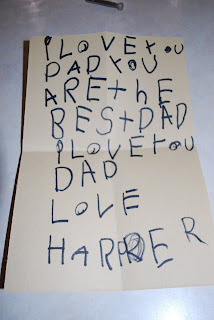 I LOVE YOU
DAD YOU
ARE thE
BESt DAD
I LOVE YOU
DAD
LOVE
HARPER